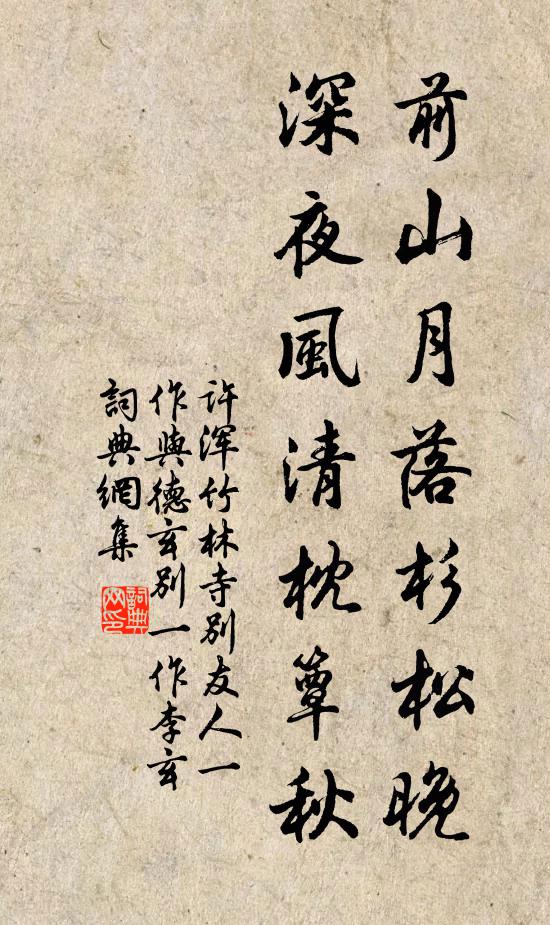 前山月落杉松晚
深夜風清枕簟秋
许渾竹林寺别友人一
作與德玄别一作李玄
詞典網集
詞典網印